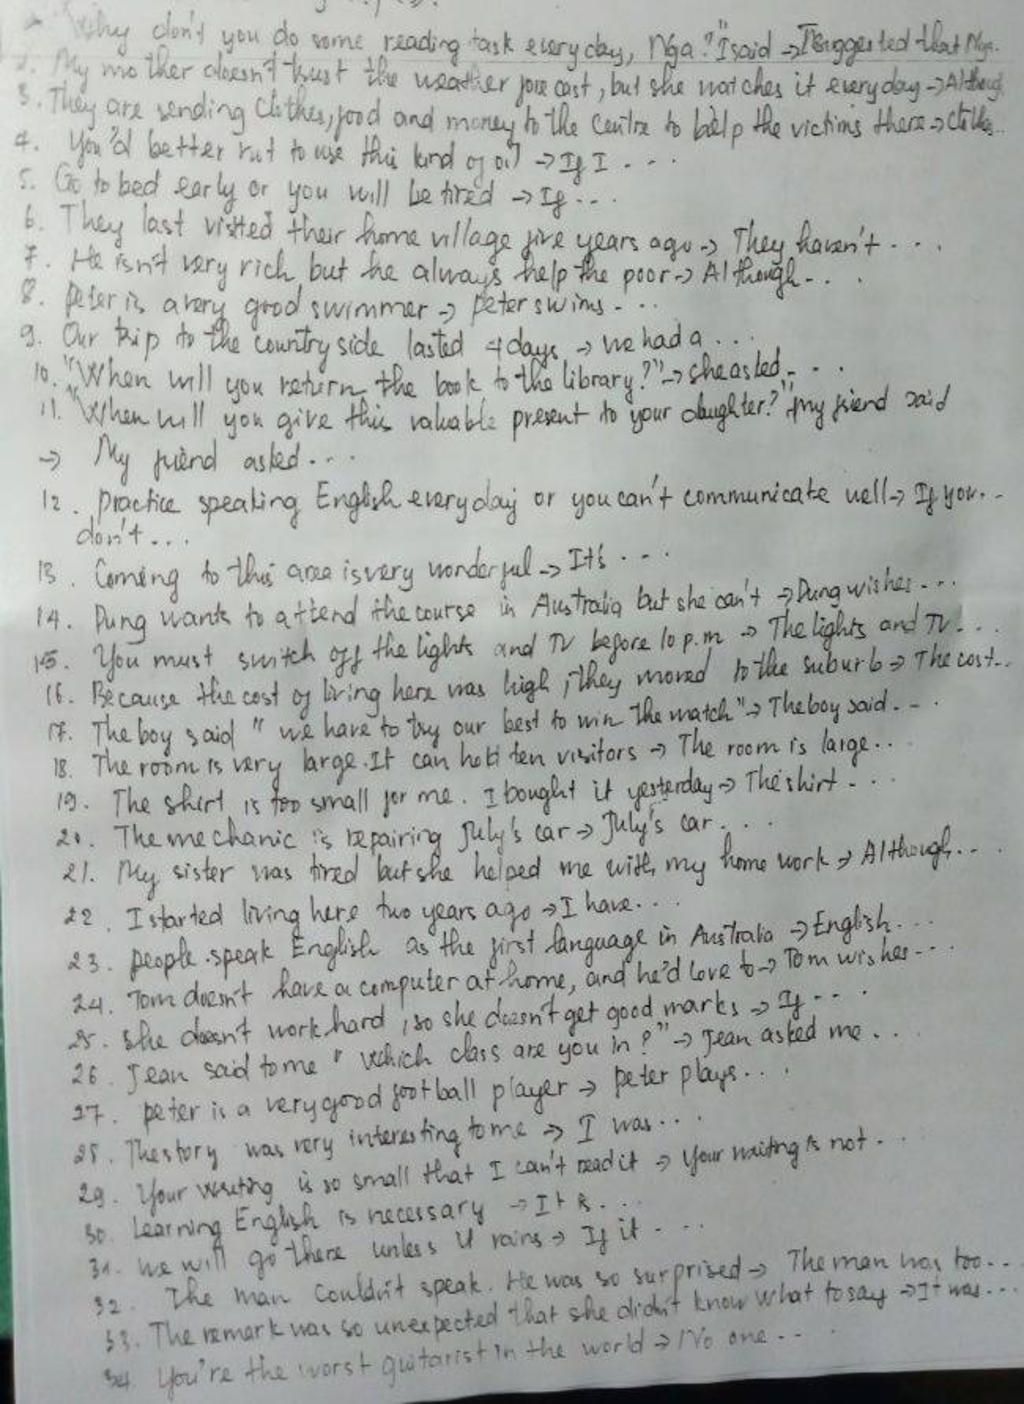 1. "Why don't you do some reading task everyday, Nga?" I said → I suggested that Nga...
2. My mother doesn't trust the weather forecast, but she watches it everyday → Although
3. They are sending clothes, food and money to the centre to help the victims there → Clothes...
4. You'd better not to use this kind of oil → If I ...
5. Go to bed early or you will be tired → If ...
6. They last visited their home village five years ago → They haven't ...
7. He isn't very rich, but he always help the poor → Although ...
8. Peter is a very good swimmer → Peter swims ...
9. Our trip to the countryside lasted 4 days → We had a ...
10. "When will you return the book to the library?" → She asked ...
11. "When will you give this valuable present to your daughter?" my friend said
→ My friend asked ...
12. Practice speaking English everyday or you can't communicate well → If you ...
don't ...
13. Coming to this area is very wonderful → It's ...
14. Dung wants to attend the course in Australia but she can't → Dung wishes ...
15. You must switch off the lights and TV before 10 p.m → The lights and TV ...
16. Because the cost of living here was high, they moved to the suburb → The cost...
17. The boy said "we have to try our best to win the match" → The boy said ...
18. The room is very large. It can hold ten visitors → The room is large...
19. The shirt is too small for me. I bought it yesterday → The shirt ...
20. The mechanic is repairing July's car → July's car ...
21. My sister was tired but she helped me with my home work → Although ...
22. I started living here two years ago → I have ...
23. People speak English as the first language in Australia → English ...
24. Tom doesn't have a computer at home, and he'd love to → Tom wishes ...
25. She doesn't work hard, so she doesn't get good marks → If ...
26. Jean said to me "which class are you in?" → Jean asked me ...
27. Peter is a very good football player → Peter plays ...
28. The story was very interesting to me → I was ...
29. Your writing is so small that I can't read it → Your writing is not ...
30. Learning English is necessary → It is ...
31. We will go there unless it rains → If it ...
32. The man couldn't speak. He was so surprised → The man was too ...
33. The remark was so unexpected that she didn't know what to say → It was ...
34. You're the worst guitarist in the world → No one ...